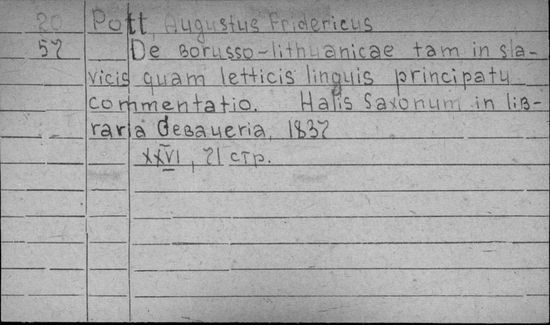 20 Pott, Augustus Fridericus
57 De Borusso-lithuanicae tam in sla-
vicis quam letticis linguis principatu
commentatio. Halis Saxonum in lib-
raria Gebaueria, 1837
XXVI, 71 стр.